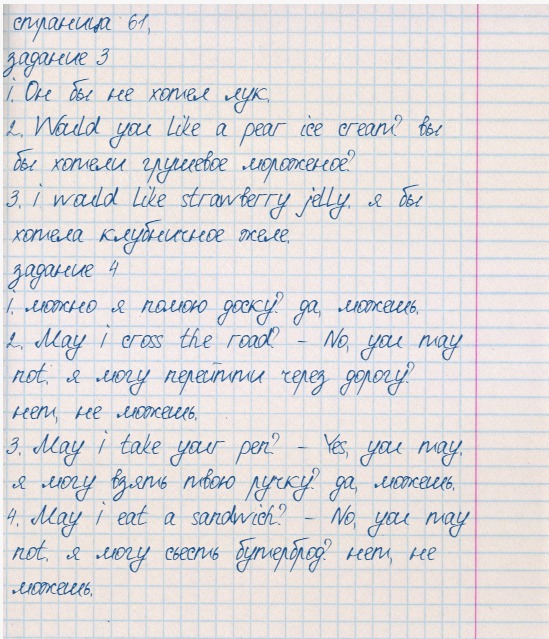 страница 61.
задание 3
1. Он бы не хотел лук.
2. Would you like a pear ice cream? вы
бы хотели грушевое мороженое?
3. i would like strawberry jelly. я бы
хотела клубничное желе.
задание 4
1. можно я помою доску? да, можешь.
2. May i cross the road? - No, you may
not. я могу перейти через дорогу?
нет, не можешь.
3. May i take your pen? - Yes, you may.
я могу взять твою ручку? да, можешь.
4. May i eat a sandwich? - No, you may
not. я могу сьесть бутерброд? нет, не
можешь.